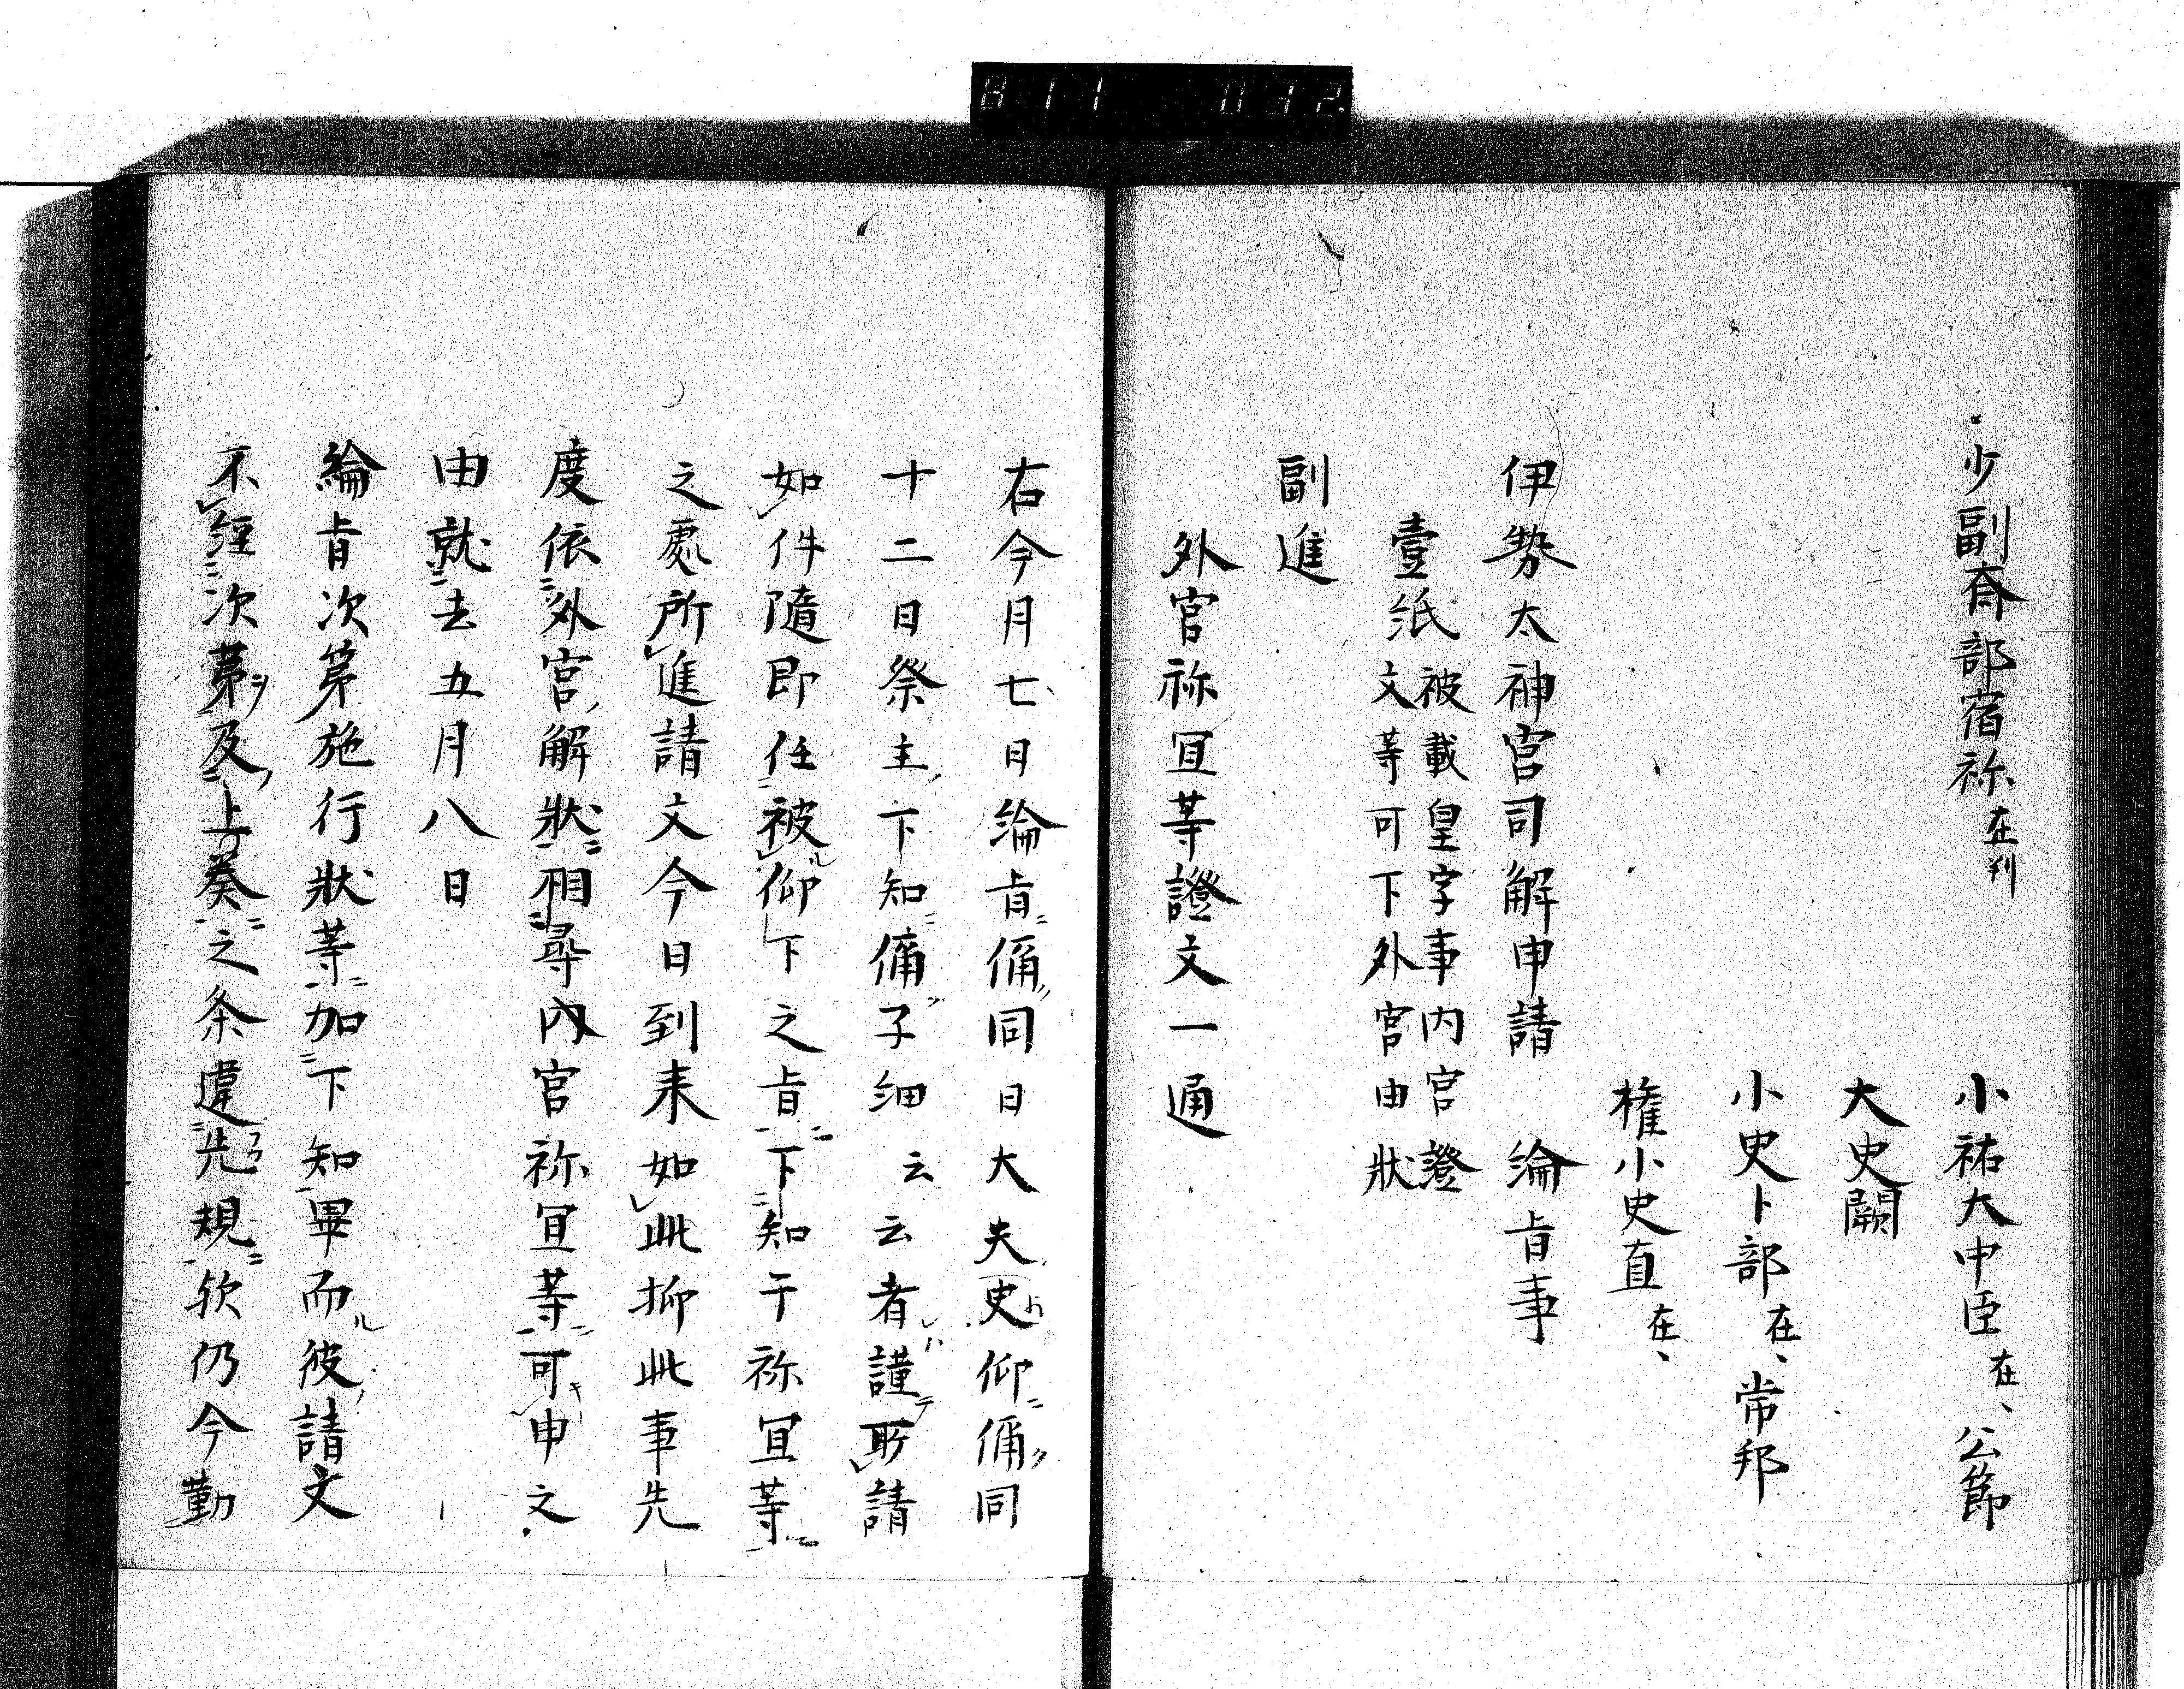 少副斎部宿祢在判
小祐大中臣在、公節
大史闕
小史卜部在、常邦
権小史直在、
伊勢太神宮司解申請　綸旨事
壹紙被載皇字事内宮證
文等可下外宮由狀
副進
外宮祢冝等證文一通
右今月七日綸旨偁同日大夫史仰偁同
十二日祭主下知偁子細云云者謹所請
如件随即任被仰下之旨下知于祢冝等
之處所進請文今日到来如此抑此事先
度依外宮解狀相尋内宮祢冝等可申文
由就去五月八日
綸旨次第施行狀等加下知畢而彼請文
不經次第及上奏之条違先規欤仍今勤